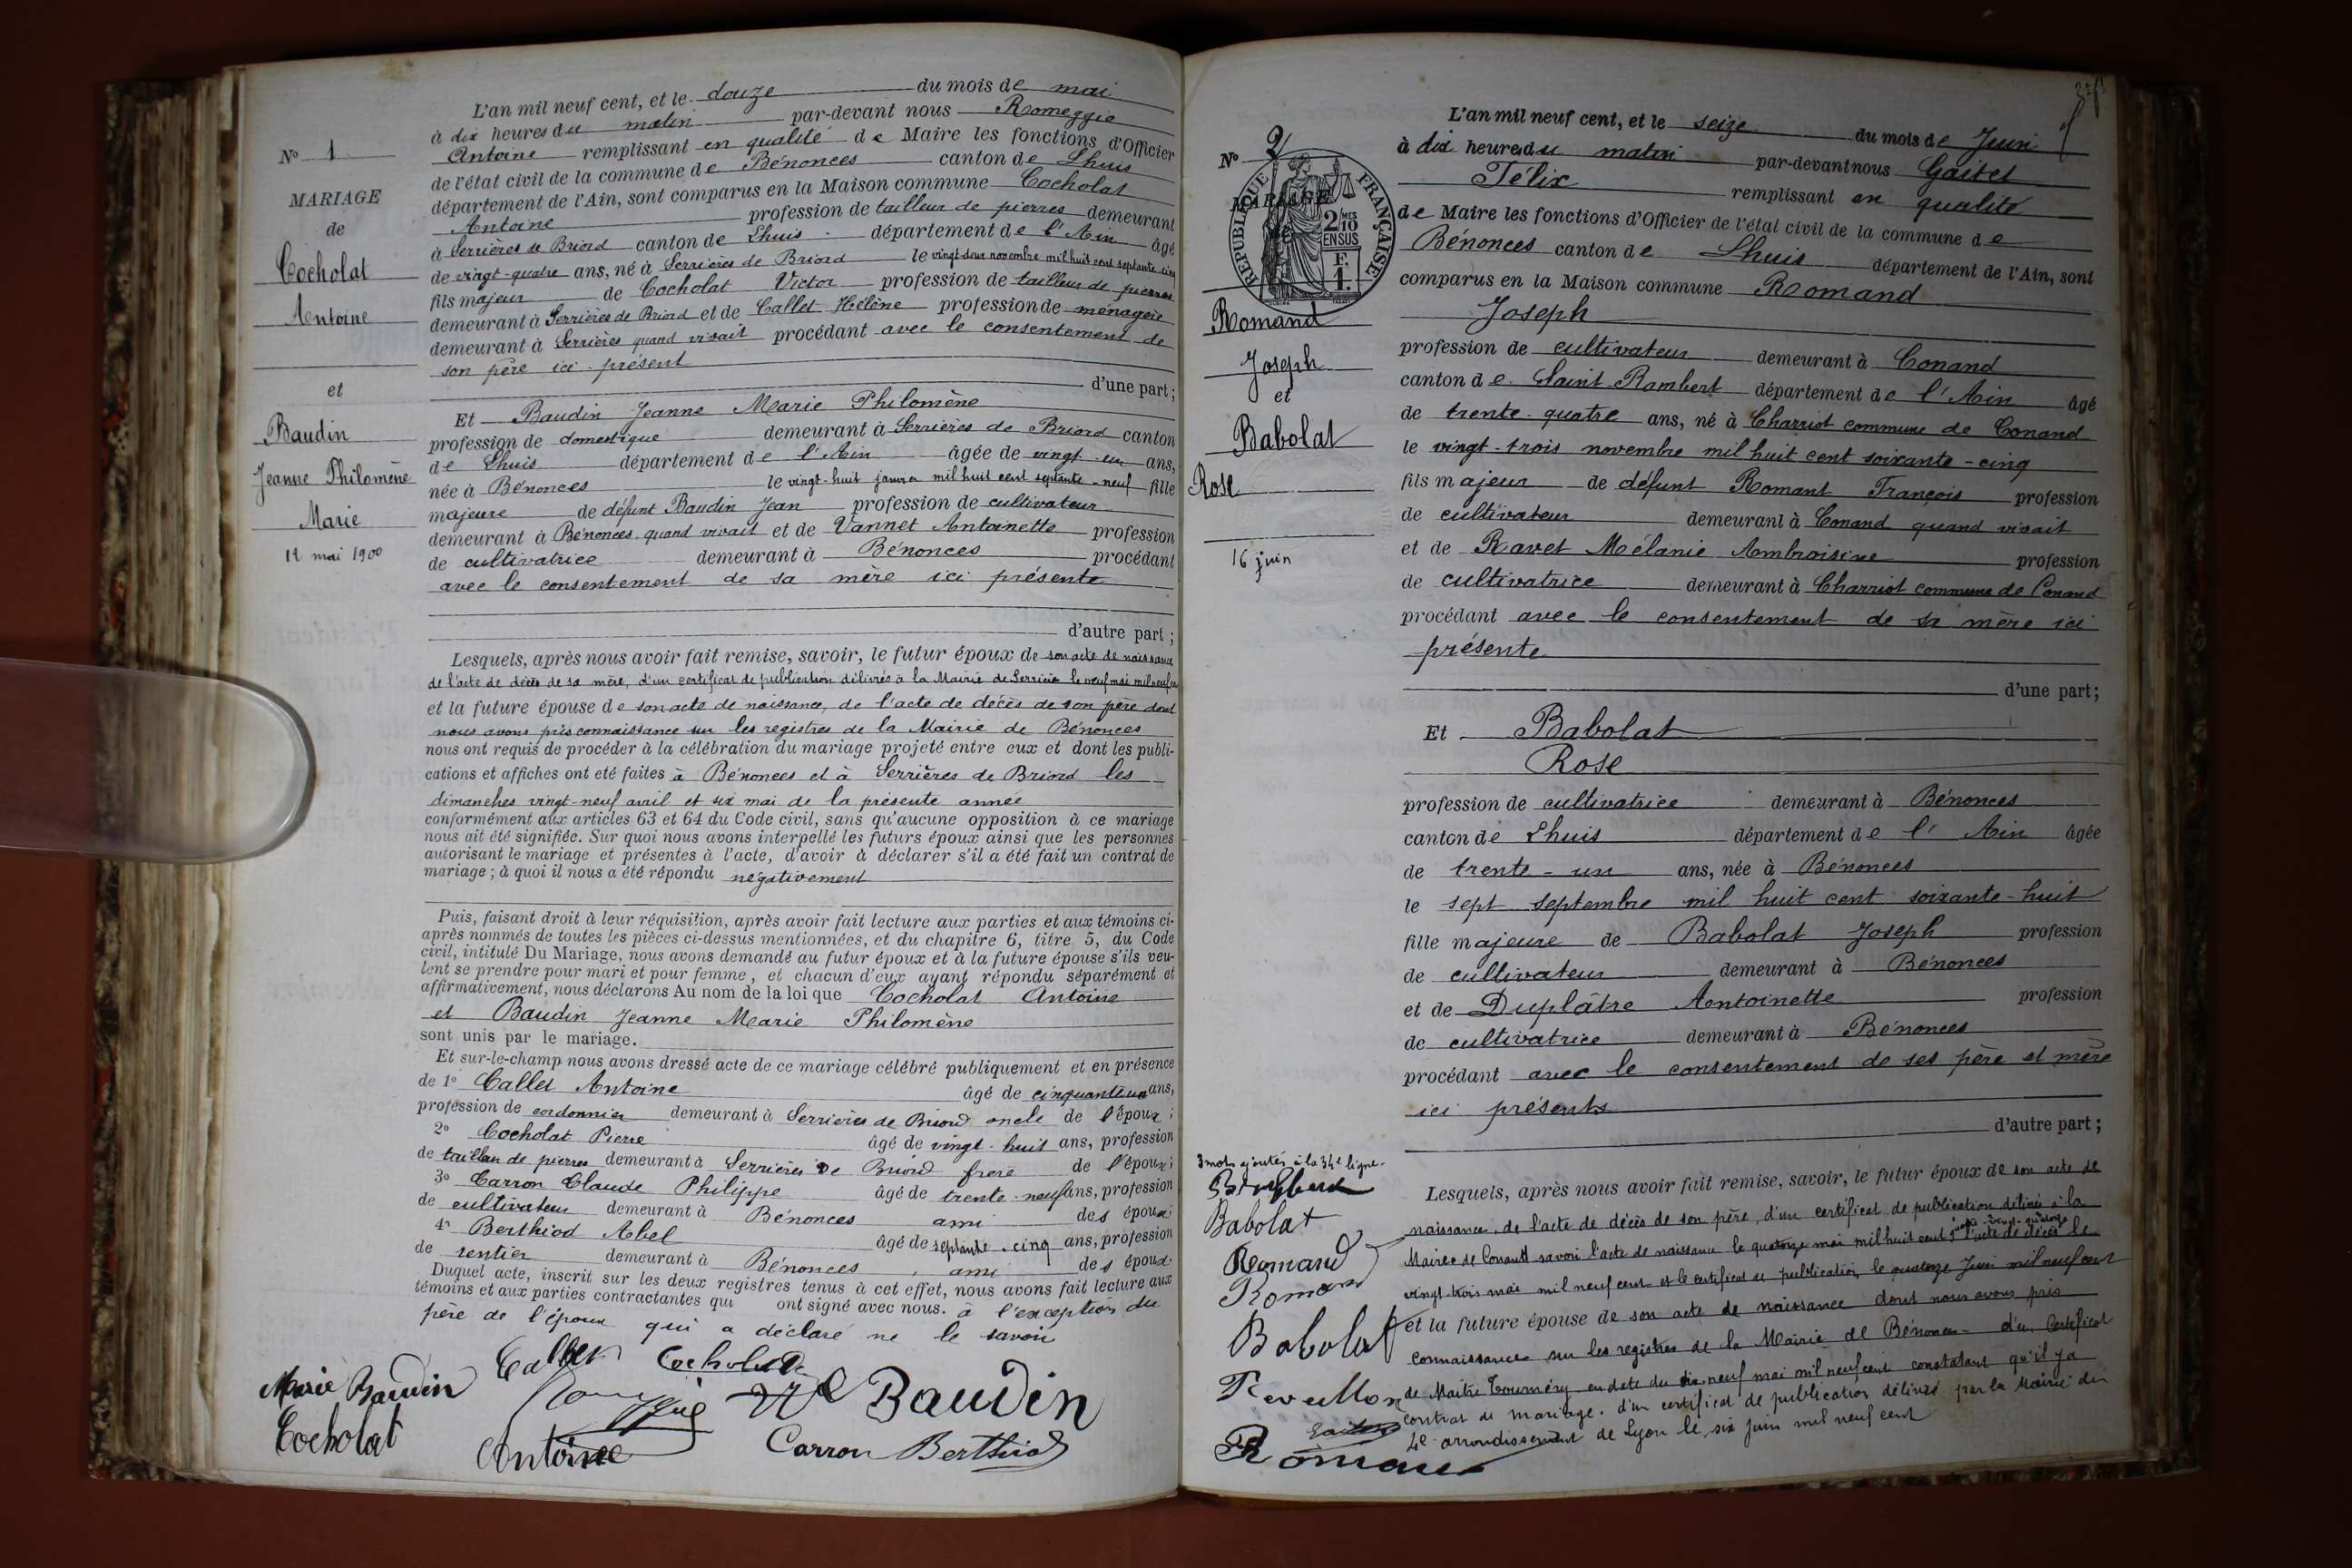 N° 1
MARIAGE
de
Cocholat
Antoine
et
Baudin
Jeanne Philomène
Marie
12 mai 1900
L'an mil neuf cent, et le douze du mois de mai
à dix heures du matin par-devant nous Romeggio
Antoine remplissant en qualité de Maire les fonctions d'Officier
de l'état civil de la commune de Bénonces canton de Lhuis
département de l'Ain, sont comparus en la Maison commune Cocholat
Antoine profession de tailleur de pierres demeurant
à Serrières de Briord canton de Lhuis département de l'Ain âgé
de vingt-quatre ans, né à Serrières de Briord le vingt-deux novembre mil huit cent septante cinq
fils majeur de Cocholat Victor profession de tailleur de pierres
demeurant à Serrières de Briord et de Callet Hélène profession de ménagère
demeurant à Serrières quand vivait procédant avec le consentement de
son père ici présent
d'une part;
Et Baudin Jeanne Marie Philomène
profession de domestique demeurant à Serrières de Briord canton
de Lhuis département de l'Ain âgée de vingt-un ans,
née à Bénonces le vingt-huit janvier mil huit cent septante-neuf fille
majeure de défunt Baudin Jean profession de cultivateur
demeurant à Bénonces quand vivait et de Vannet Antoinette profession
de cultivatrice demeurant à Bénonces procédant
avec le consentement de sa mère ici présente
d'autre part;
Lesquels, après nous avoir fait remise, savoir, le futur époux de son acte de naissance
de l'acte de décès de sa mère, d'un certificat de publication délivrés à la Mairie de Serrières le neuf mai mil neuf cent
et la future épouse de son acte de naissance, de l'acte de décès de son père dont
nous avons pris connaissance sur les registres de la Mairie de Bénonces
nous ont requis de procéder à la célébration du mariage projeté entre eux et dont les publi-
cations et affiches ont été faites à Bénonces et à Serrières de Briord les
dimanches vingt-neuf avril et six mai de la présente année
conformément aux articles 63 et 64 du Code civil, sans qu'aucune opposition à ce mariage
nous ait été signifiée. Sur quoi nous avons interpellé les futurs époux ainsi que les personnes
autorisant le mariage et présentes à l'acte, d'avoir à déclarer s'il a été fait un contrat de
mariage; à quoi il nous a été répondu négativement
Puis, faisant droit à leur réquisition, après avoir fait lecture aux parties et aux témoins ci-
après nommés de toutes les pièces ci-dessus mentionnées, et du chapitre 6, titre 5, du Code
civil, intitulé Du Mariage, nous avons demandé au futur époux et à la future épouse s'ils veu-
lent se prendre pour mari et pour femme, et chacun d'eux ayant répondu séparément et
affirmativement, nous déclarons Au nom de la loi que Cocholat Antoine
et Baudin Jeanne Marie Philomène
sont unis par le mariage.
Et sur-le-champ nous avons dressé acte de ce mariage célébré publiquement et en présence
de 1° Callet Antoine âgé de cinquante un ans,
profession de cordonnier demeurant à Serrières de Briord oncle de l'époux;
2° Cocholat Pierre âgé de vingt-huit ans, profession
de tailleur de pierres demeurant à Serrières de Briord frere de l'époux;
3° Carron Claude Philippe âgé de trente-neuf ans, profession
de cultivateur demeurant à Bénonces ami des époux;
4° Berthiod Abel âgé de septante-cinq ans, profession
de rentier demeurant à Bénonces, ami des époux
Duquel acte, inscrit sur les deux registres tenus à cet effet, nous avons fait lecture aux
témoins et aux parties contractantes qui ont signé avec nous. à l'exception du
père de l'époux qui a déclaré ne le savoir
Marie Baudin Callet Cocholat
Baudin
Cocholat Antoine Carron Berthiod
N° 2
RÉPUBLIQUE FRANÇAISE
2/10 MES
EN SUS
F.
1.
MARIAGE
de
Romand
Joseph
et
Babolat
Rose
16 juin
L'an mil neuf cent, et le seize du mois de Juin
à dix heures du matin par-devant nous Gaitet
Félix remplissant en qualité
de Maire les fonctions d'Officier de l'état civil de la commune de
Bénonces canton de Lhuis département de l'Ain, sont
comparus en la Maison commune Romand
Joseph
profession de cultivateur demeurant à Conand
canton de Saint Rambert département de l'Ain âgé
de trente-quatre ans, né à Charriot commune de Conand
le vingt-trois novembre mil huit cent soixante-cinq
fils majeur de défunt Romant François profession
de cultivateur demeurant à Conand quand vivait
et de Ravet Mélanie Ambroisine profession
de cultivatrice demeurant à Charriot commune de Conand
procédant avec le consentement de sa mère ici
présente
d'une part;
Et Babolat
Rose
profession de cultivatrice demeurant à Bénonces
canton de Lhuis département de l'Ain âgée
de trente-un ans, née à Bénonces
le sept septembre mil huit cent soixante-huit
fille majeure de Babolat Joseph profession
de cultivateur demeurant à Bénonces
et de Duplâtre Antoinette profession
de cultivatrice demeurant à Bénonces
procédant avec le consentement de ses père et mère
ici présents
d'autre part;
Lesquels, après nous avoir fait remise, savoir, le futur époux de son acte de
naissance, de l'acte de décès de son père, d'un certificat de publication délivrés à la
Mairie de Conand savoir l'acte de naissance le quatorze mai mil huit cent l'acte de décès le
vingt-trois mai mil neuf cent et le certificat de publication le quatorze Juin mil neuf cent
et la future épouse de son acte de naissance dont nous avons pris
connaissance sur les registres de la Mairie de Bénonces d'un certificat
de Maître Tournéry en date du dix neuf mai mil neuf cent constatant qu'il y a
contrat de mariage. d'un certificat de publication délivré par la Mairie du
4e arrondissement de Lyon le six juin mil neuf cent
3 mots ajoutés à la 34e ligne.
Babolat
Romand
Romand
Babolat
Revellon
Gaitet